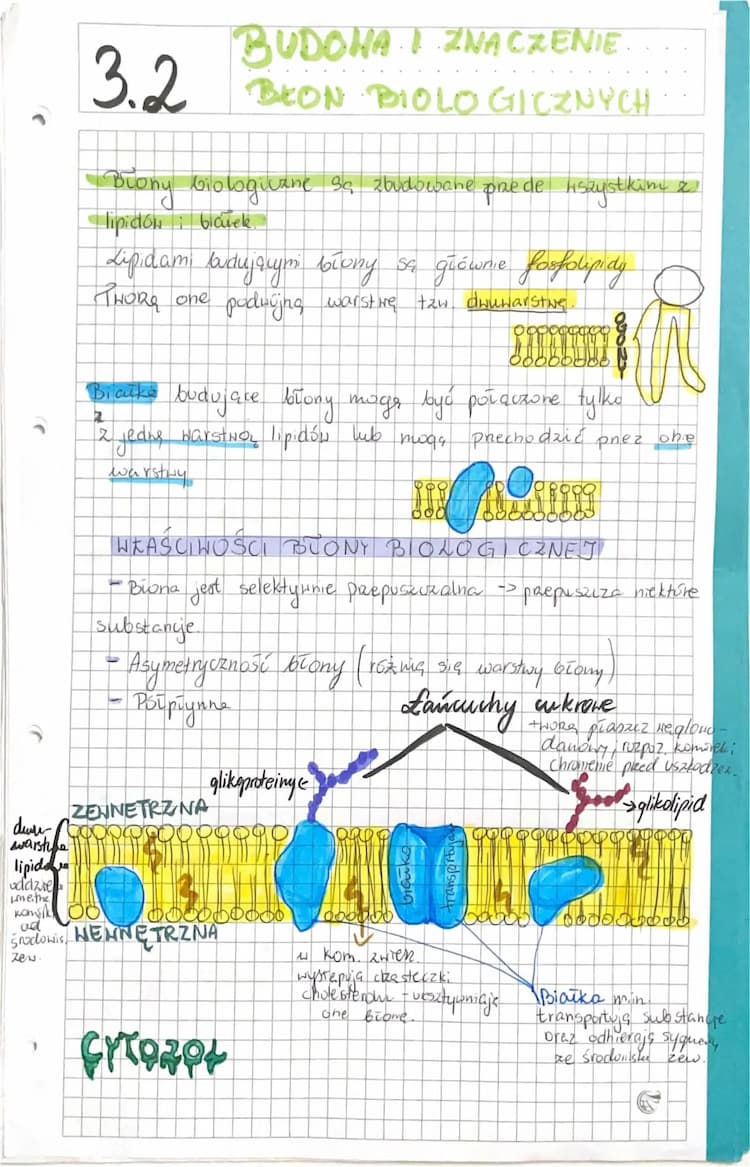 3.2
BUDOWA I ZNACZENIE
BŁON BIOLOGICZNYCH
Błony biologiczne są zbudowane przede wszystkim z
lipidów i białek.
Lipidami budującymi błony są głównie fosfolipidy
Tworzą one podwójną warstwę tzw. dwuwarstwę.
OGONY
Białka budujące błony mogą być połączone tylko
z
z jedną warstwą lipidów lub mogą przechodzić przez obie
warstwy
WŁAŚCIWOŚCI BŁONY BIOLOGICZNEJ
- Błona jest selektywnie przepuszczalna -> przepuszcza niektóre
substancje.
- Asymetryczność błony (różnią się warstwy błony)
- Półpłynna
Łańcuchy cukrowe
tworzą płaszcz węglowo-
danowy, rozpoz. komórek i
chronienie przed uszkodzen.
glikoproteiny
glikolipid
ZEWNĘTRZNA
dwu-
warstwa
lipidowa
oddziela
wnętrze
komórki
od
środowis.
zew.
białko
transportujące
WEWNĘTRZNA
w kom. zwierz.
występują cząsteczki
cholesterolu - usztywniają
one błonę.
Białka m.in.
transportują substancje
oraz odbierają sygnały
ze środowiska zew.
CYTOZOL